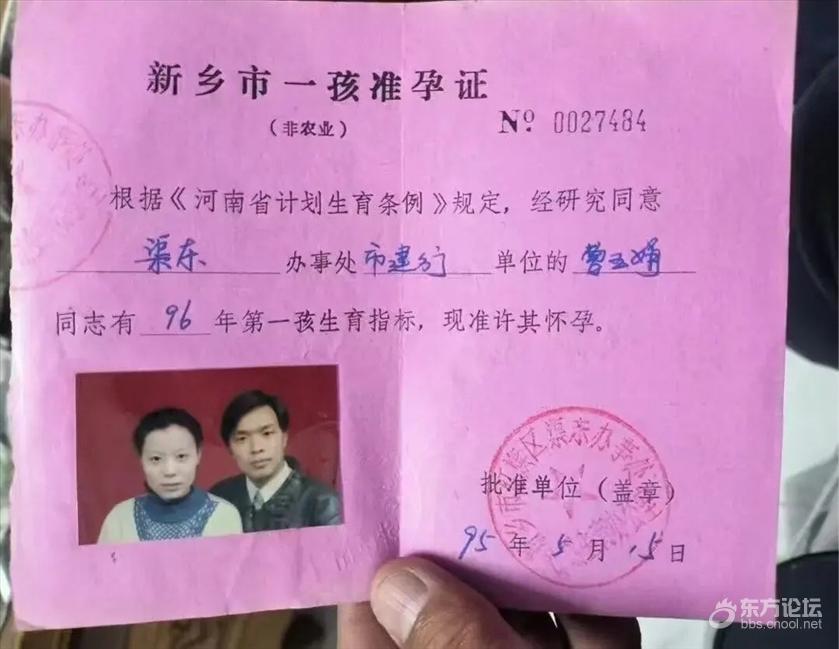 新乡市一孩准孕证
（非农业）
Nº 0027484
根据《河南省计划生育条例》规定，经研究同意
渠东 办事处 市建行 单位的 曹玉娟
同志有 96 年第一孩生育指标，现准许其怀孕。
区渠东办事
批准单位（盖章）
95 年 5 月 15 日
东方论坛
bbs.cnool.net